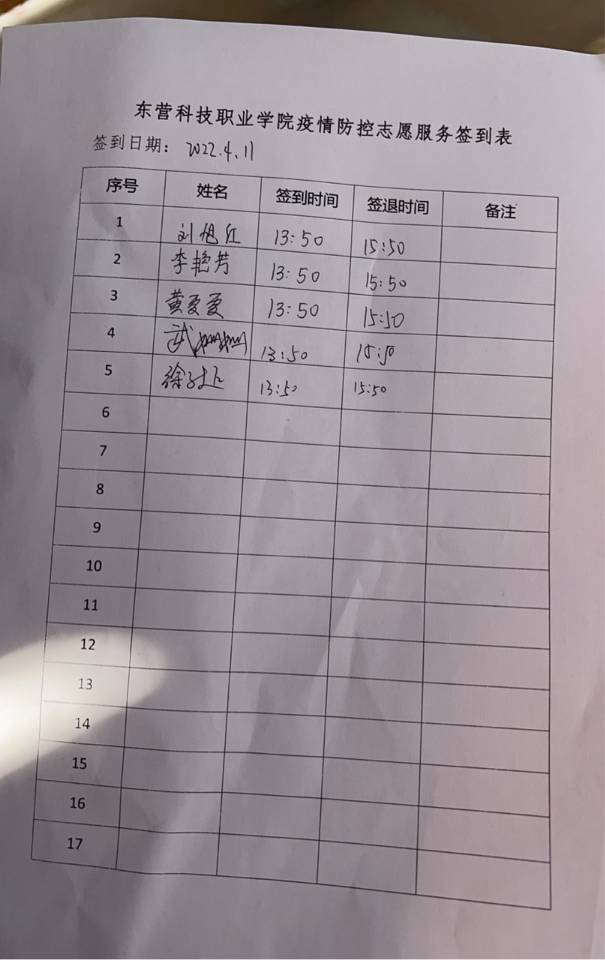 东营科技职业学院疫情防控志愿服务签到表
签到日期： 2022.4.11
序号 姓名 签到时间 签退时间 备注
1 刘旭红 13:50 15:50
2 李艳芳 13:50 15:50
3 黄夏夏 13:50 15:50
4 武姗姗 13:50 15:50
5 徐 13:50 15:50
6
7
8
9
10
11
12
13
14
15
16
17